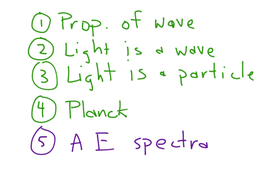 ① Prop. of wave
② Light is a wave
③ Light is a particle
④ Planck
⑤ A E spectra